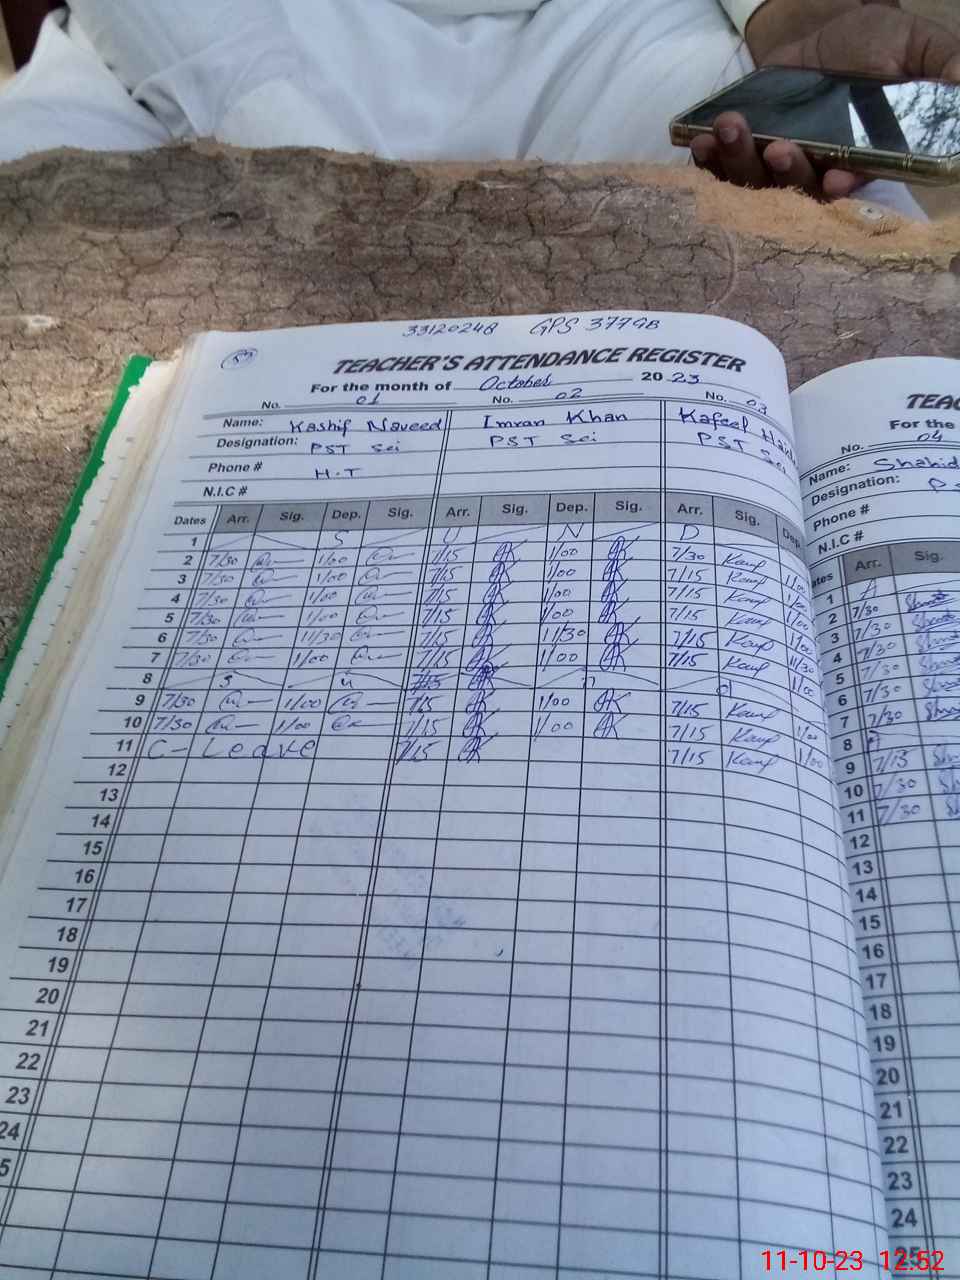 33120248 GPS 377GB
59
TEACHER'S ATTENDANCE REGISTER
For the month of October 2023
No. 01 No. 02 No. 03
Name: Kashif Naveed Imran Khan Kafeel
Designation: PST Sci PST Sci PST Sci
Phone # H.T
N.I.C #
Dates Arr. Sig. Dep. Sig. Arr. Sig. Dep. Sig. Arr. Sig. Dep
1 S U N D
2 7/30 1/00 7/15 1/00 7/30 1/00
3 7/30 1/00 7/15 1/00 7/15 1/00
4 7/30 1/00 7/15 1/00 7/15 1/00
5 7/30 1/00 7/15 1/00 7/15 1/00
6 7/30 11/30 7/15 11/30 7/15 11/30
7 7/30 1/00 7/15 1/00 7/15 1/00
8 S u 7/15 n d
9 7/30 1/00 7/15 1/00 7/15 1/00
10 7/30 1/00 7/15 1/00 7/15 1/00
11 C-Leave 7/15 7/15
12
13
14
15
16
17
18
19
20
21
22
23
24
5
TEAC
For the
No. 04
Name: Shahid
Designation: PS
Phone #
N.I.C #
ates Arr. Sig.
1 A
2 7/30
3 7/30
4 7/30
5 7/30
6 7/30
7 7/30
8
9 7/15
10 7/30
11 7/30
12
13
14
15
16
17
18
19
20
21
22
23
24
25
11-10-23 12:52